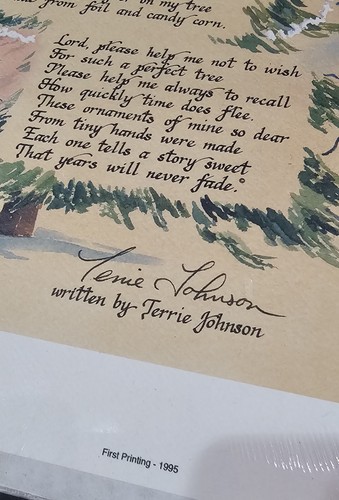 on my tree
from foil and candy corn.
Lord, please help me not to wish
For such a perfect tree
Please help me always to recall
How quickly time does flee.
These ornaments of mine so dear
From tiny hands were made
Each one tells a story sweet
That years will never fade.
Terrie Johnson
written by Terrie Johnson
First Printing - 1995